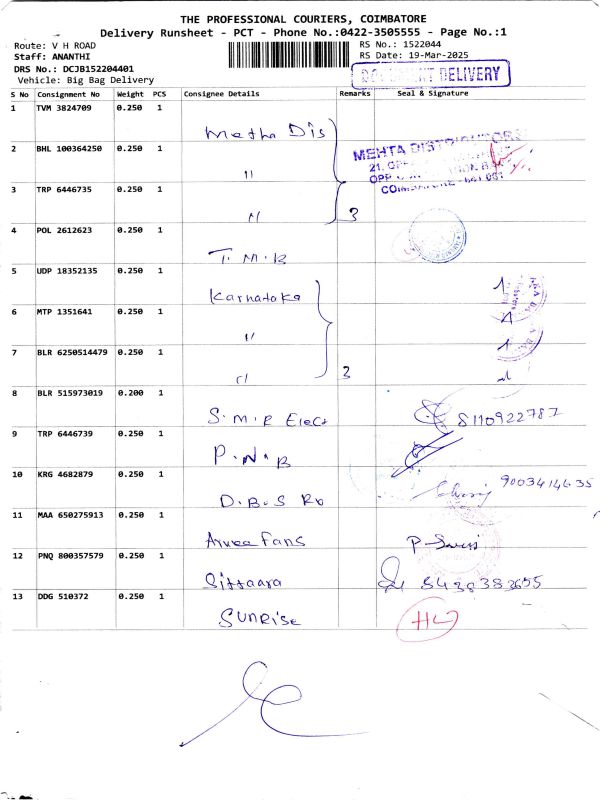 THE PROFESSIONAL COURIERS, COIMBATORE
Delivery Runsheet - PCT - Phone No.:0422-3505555 - Page No.:1
Route: V H ROAD
RS No.: 1522044
Staff: ANANTHI
RS Date: 19-Mar-2025
DRS No.: DCJB152204401
Vehicle: Big Bag Delivery
DOCUMENT DELIVERY
S No Consignment No Weight PCS Consignee Details Remarks Seal & Signature
1 TVM 3824709 0.250 1
Metha Dis
2 BHL 100364250 0.250 1
MEHTA DISTRIBUTORS
21,
OPP
COIMBATORE - 641 001
"
3 TRP 6446735 0.250 1
" 3
4 POL 2612623 0.250 1
T. M. B
5 UDP 18352135 0.250 1
Karnataka
6 MTP 1351641 0.250 1
"
7 BLR 6250514479 0.250 1
" 3
8 BLR 515973019 0.200 1
S. M. R Elect 8110922787
9 TRP 6446739 0.250 1
P. N. B
10 KRG 4682879 0.250 1
D. B. S 9003414635
11 MAA 650275913 0.250 1
Arvee Fans
12 PNQ 800357579 0.250 1
Sittaara 8438383655
13 DDG 510372 0.250 1
Sunrise HL